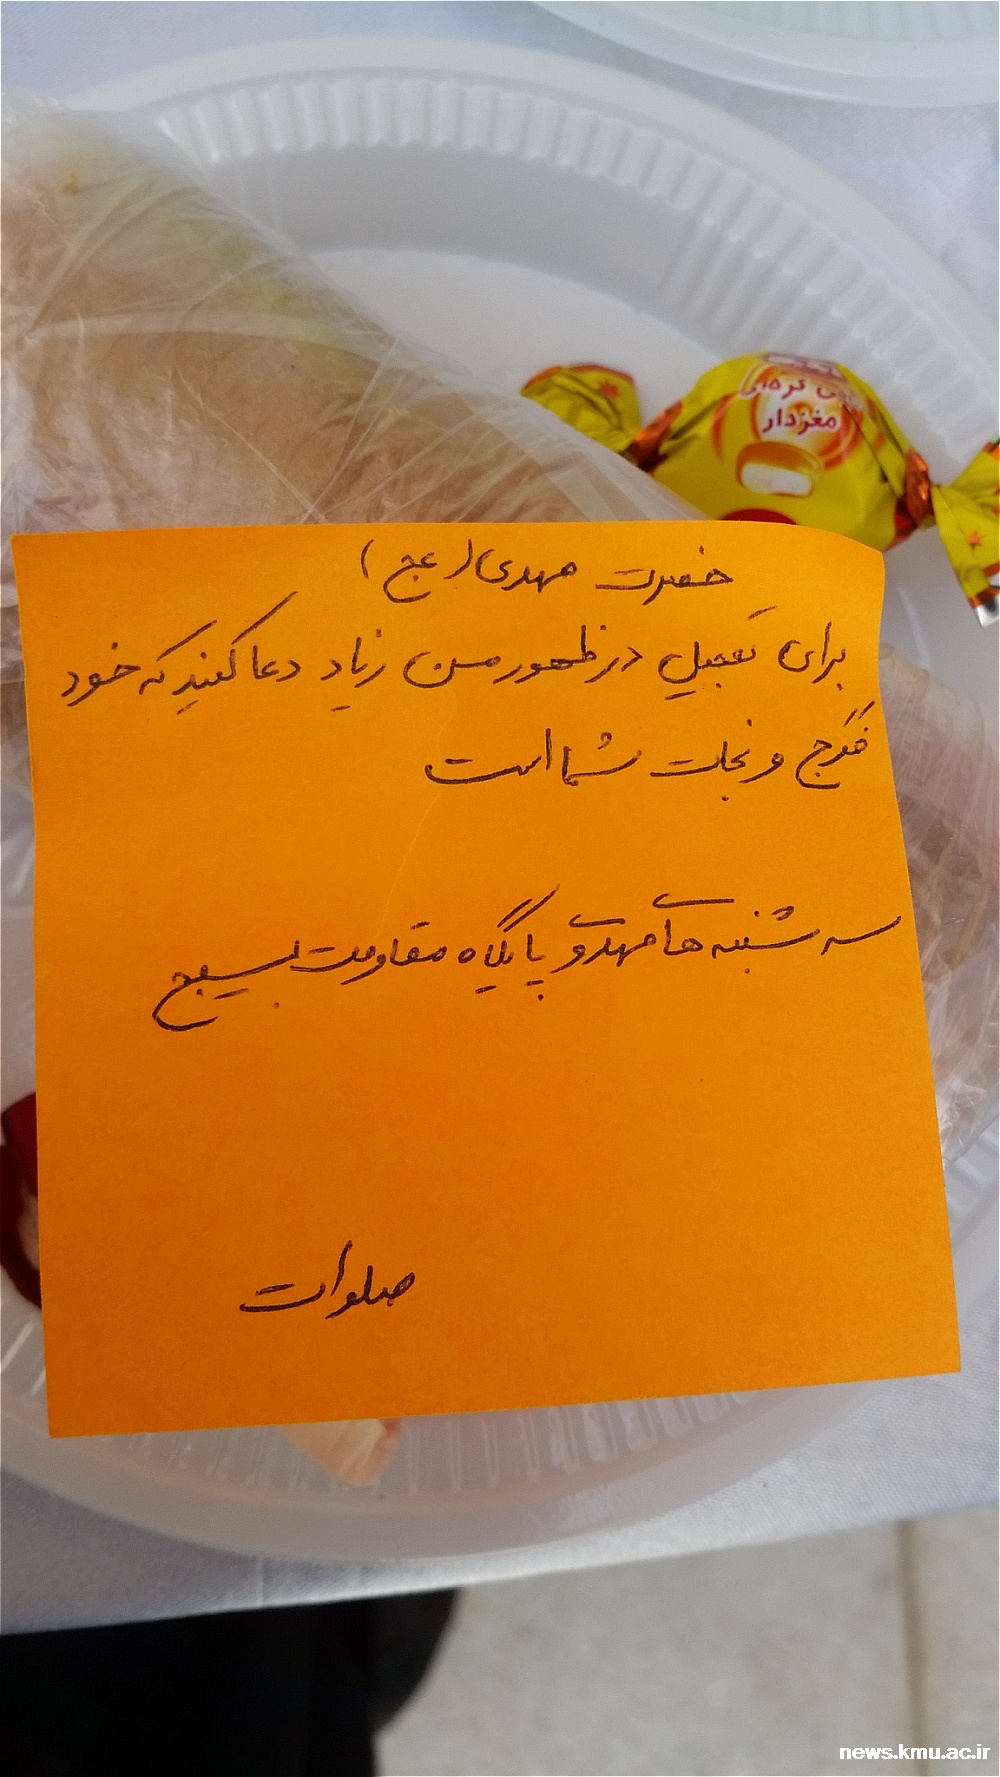 کره‌ای
مغزدار
حضرت مهدی (عج)
برای تعجیل در ظهور من زیاد دعا کنید که خود
فَرَج و نجات شما است
سه شنبه های مهدوی پایگاه مقاومت بسیج
صلوات
news.kmu.ac.ir